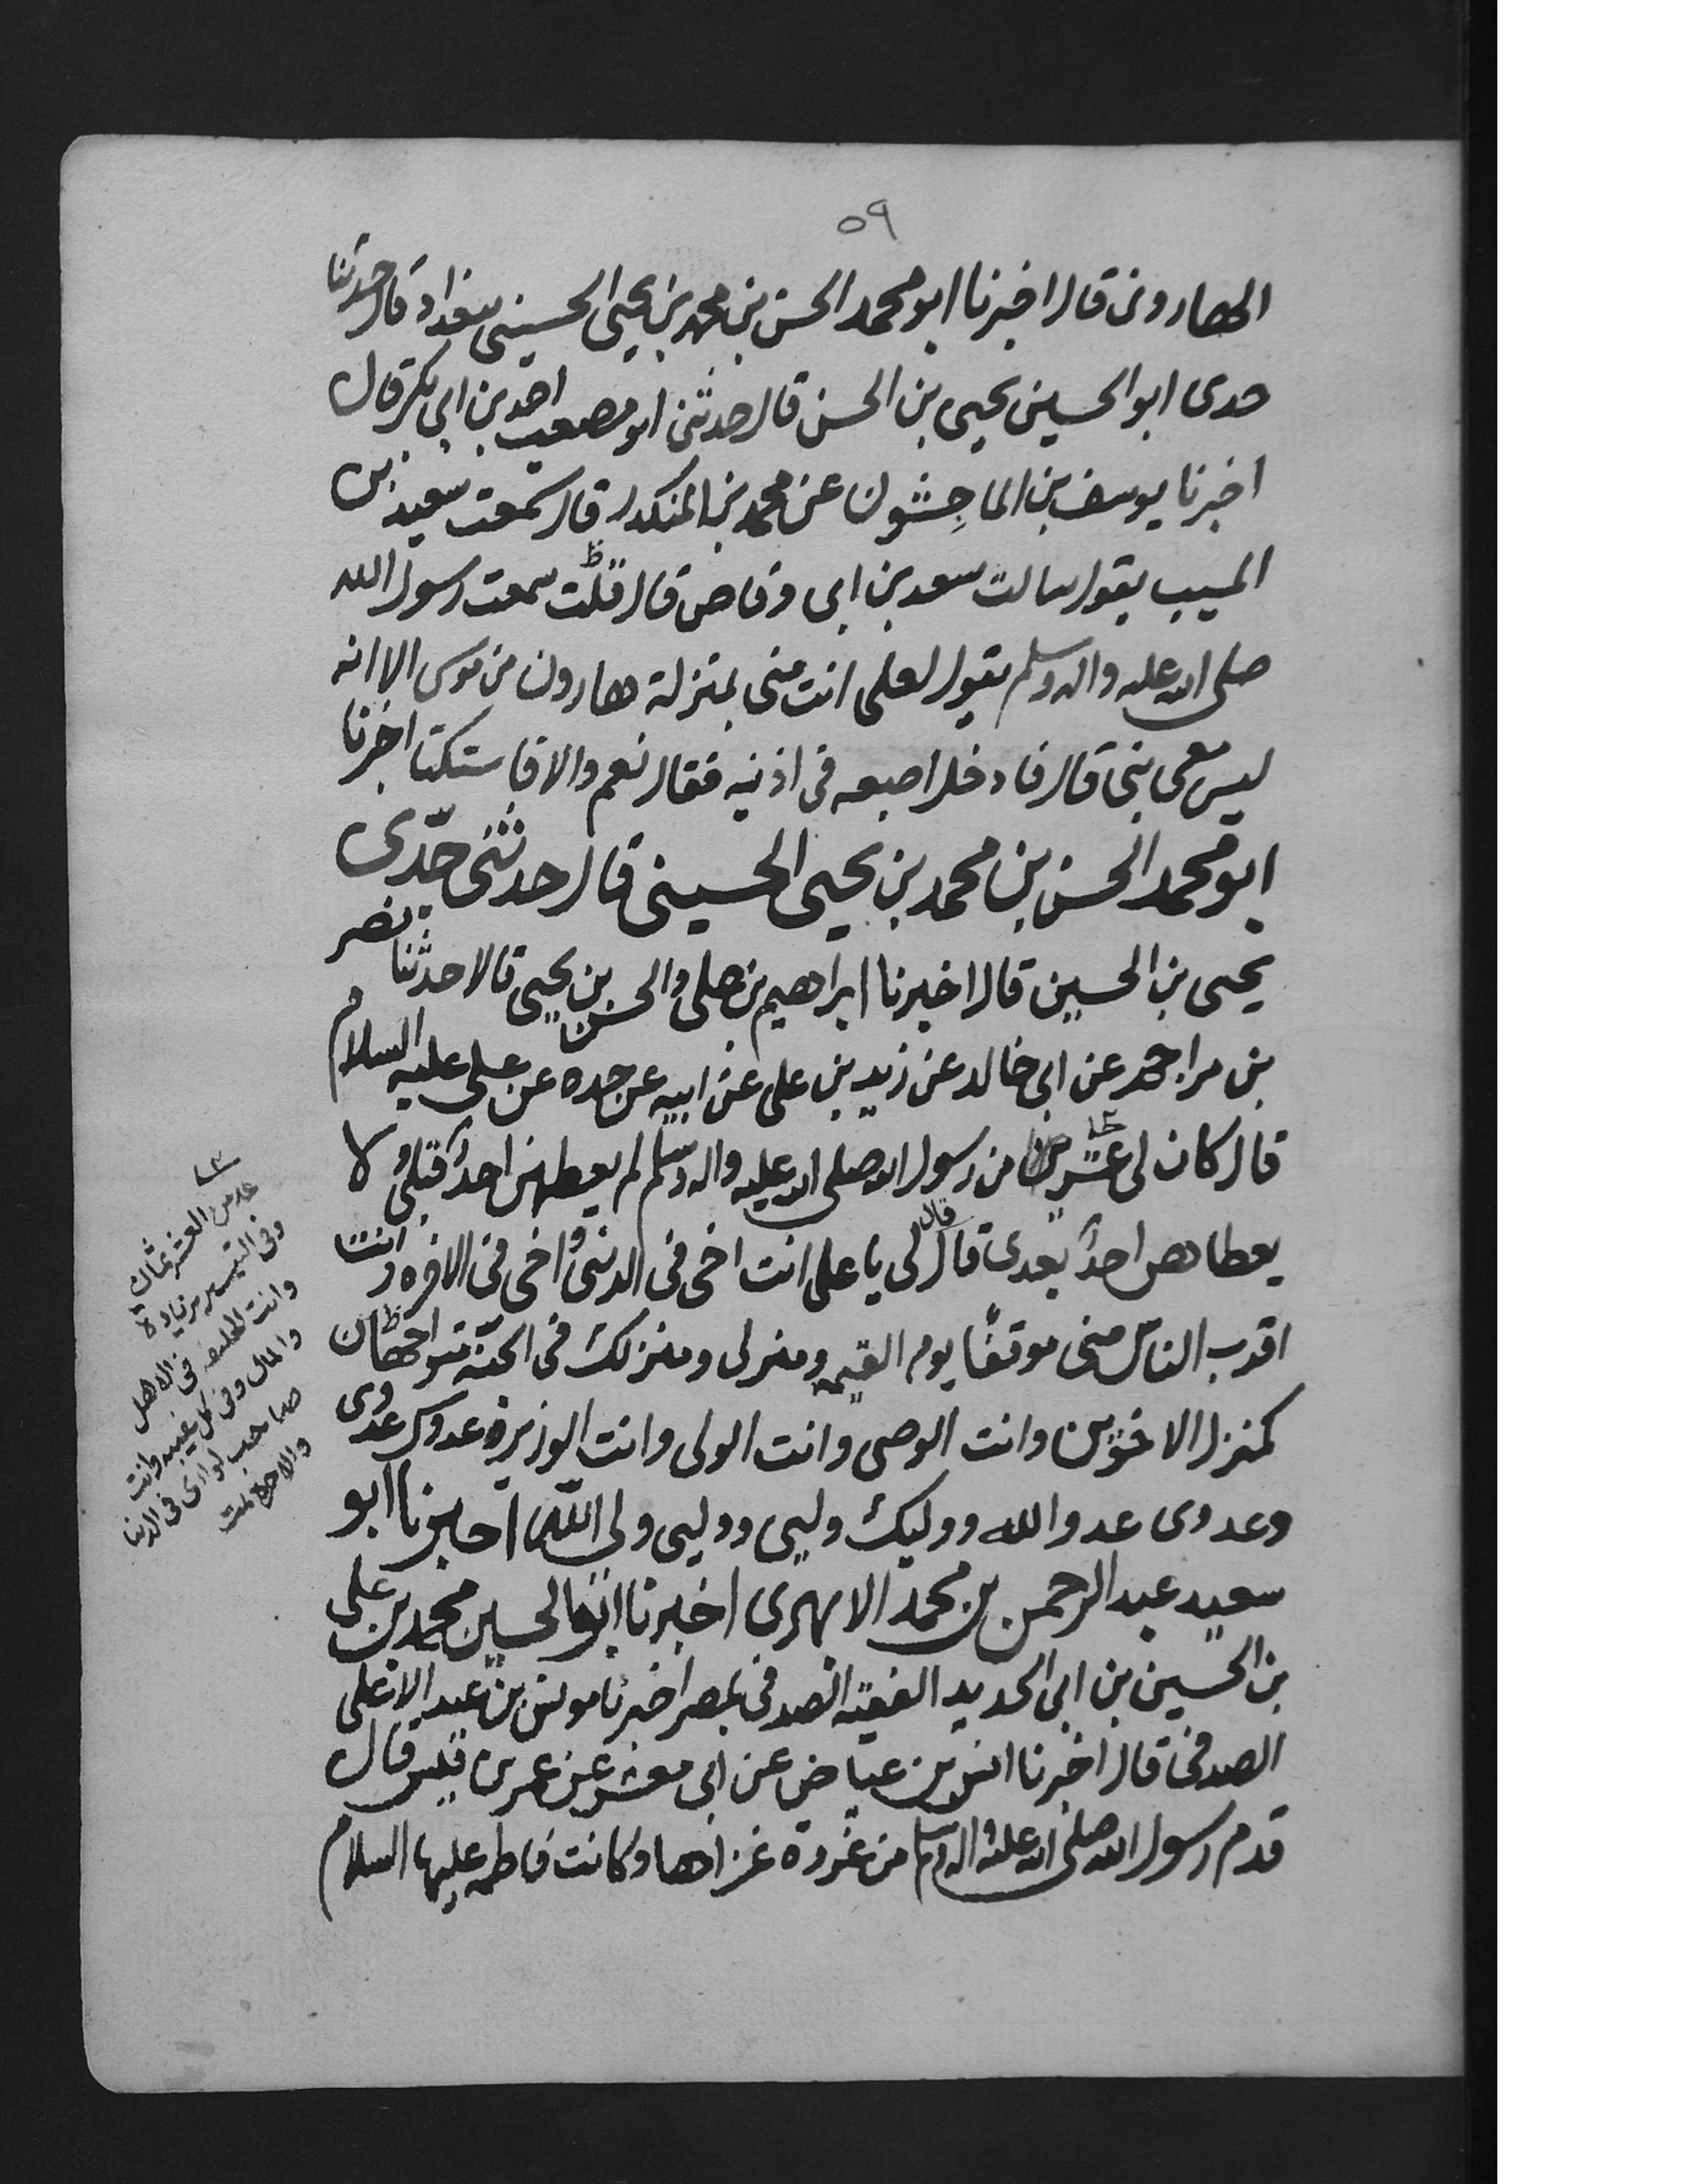 ٥٩
الهارونى قال اخبرنا ابو محمد الحسن بن محمد بن يحيى الحسينى ببغداد قال حدثنا
جدى ابو الحسين يحيى بن الحسن قال حدثنى ابو مصعب احمد بن ابى بكر قال
اخبرنا يوسف بن الماجِشون عن محمد بن المنكدر قال سمعت سعيد بن
المسيب يقول سالت سعد بن ابى وقاص قال قلت سمعت رسول الله
صلى الله عليه واله وسلم يقول لعلى انت منى بمنزلة هارون من موسى الا انه
ليس معى نبى قال فادخل اصبعه فى اذنيه فقال نعم والا فاستكتا اخبرنا
ابو محمد الحسن بن محمد بن يحيى الحسينى قال حدثنى جدّى
يحيى بن الحسين قال اخبرنا ابراهيم بن على والحسن بن يحيى قالا حدثنا نصر
بن مزاحم عن ابى خالد عن زيد بن على عن ابيه عن جده عن على عليه السلام
قال كان لى عشر من رسول الله صلى الله عليه واله وسلم لم يعطهن احدٌ قبلى ولا
يعطاهن احدٌ بعدى قال قال لى يا على انت اخى فى الدنيى واخى فى الاخره وانت
اقرب الناس منى موقفًا يوم القيمه ومنزلى ومنزلك فى الجنّة متواجهان
كمنزل الاخوين وانت الوصى وانت الولى وانت الوزيره عدوك عدوى
وعدوى عدو الله ووليك وليى ووليى ولى اللّه اخبرنا ابو
سعيد عبد الرحمن بن محمد الابهرى اخبرنا ابو الحسين محمد بن على
بن الحسين بن ابى الحديد الفقيه الصدفى بمصر اخبرنا يونس بن عبد الاعلى
الصدفى قال اخبرنا انس بن عياض عن ابى معشر عن عمر بن قيس قال
قدم رسول الله صلى الله عليه واله وسلم من غزوة غزاها وكانت فاطمه عليها السلام
عد من العشر ثمان
وفى التيسير زيادة
وانت الخليفه فى الاهل
والمال وفى كل غيبه وانت
صاحب لواى فى الدنيا
والاخرة تمت